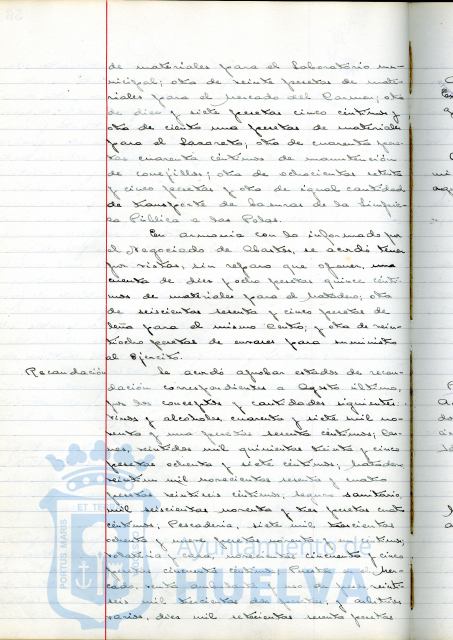 de materiales para el Laboratorio mu-
nicipal; otra de veinte pesetas de mate-
riales para el Mercado del Carmen; otra
de diez y siete pesetas cinco céntimos y
otra de ciento una pesetas de materiales
para el Lazareto; otra de cuarenta pese-
tas cuarenta céntimos de manutención
de conejillos; otra de ochocientas setenta
y cinco pesetas y otra de igual cantidad
de transporte de basuras de la Limpie-
za Pública a las Polas.
En armonía con lo informado por
el Negociado de Abastos, se acordó tener
por vistas, sin reparo que oponer, una
cuenta de diez y ocho pesetas quince cénti-
mos de materiales para el Matadero; otra
de seiscientas sesenta y cinco pesetas de
leña para el mismo Centro; y otra de vein-
tiocho pesetas de envases para suministro
al Ejército.
Recaudación
Se acordó aprobar estados de recau-
dación correspondientes a Agosto último,
por los conceptos y cantidades siguientes:
vinos y alcoholes, cuarenta y siete mil no-
venta y una pesetas sesenta céntimos; Car-
nes, veintidos mil quinientas treinta y cinco
pesetas ochenta y siete céntimos; Matadero
veintiun mil novecientas sesenta y cuatro
pesetas veintiseis céntimos; seguro sanitario,
mil seiscientas noventa y tres pesetas cuatro
céntimos; Pescadería, siete mil trescientas
ochenta y nueve pesetas noventa céntimos;
cincuenta y cinco
pesetas cincuenta céntimos; Puestos Mer-
cado, veinti-
seis mil trescientas dos pesetas; y arbitrios
varios, diez mil setecientas sesenta pesetas
PORTUS MARIS ET TE
Ayuntamiento de
HUELVA